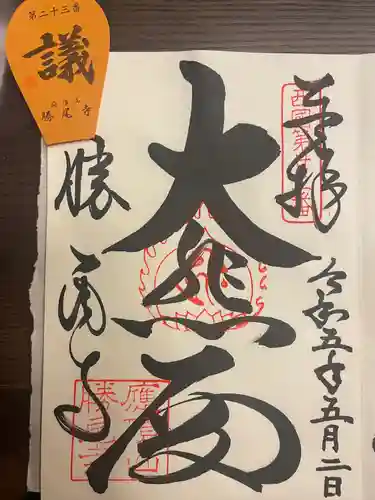 第二十三番
議
勝尾寺
奉拝
西国第廿三番
令和五年五月二日
大悲
勝尾寺
應頂山
勝尾寺